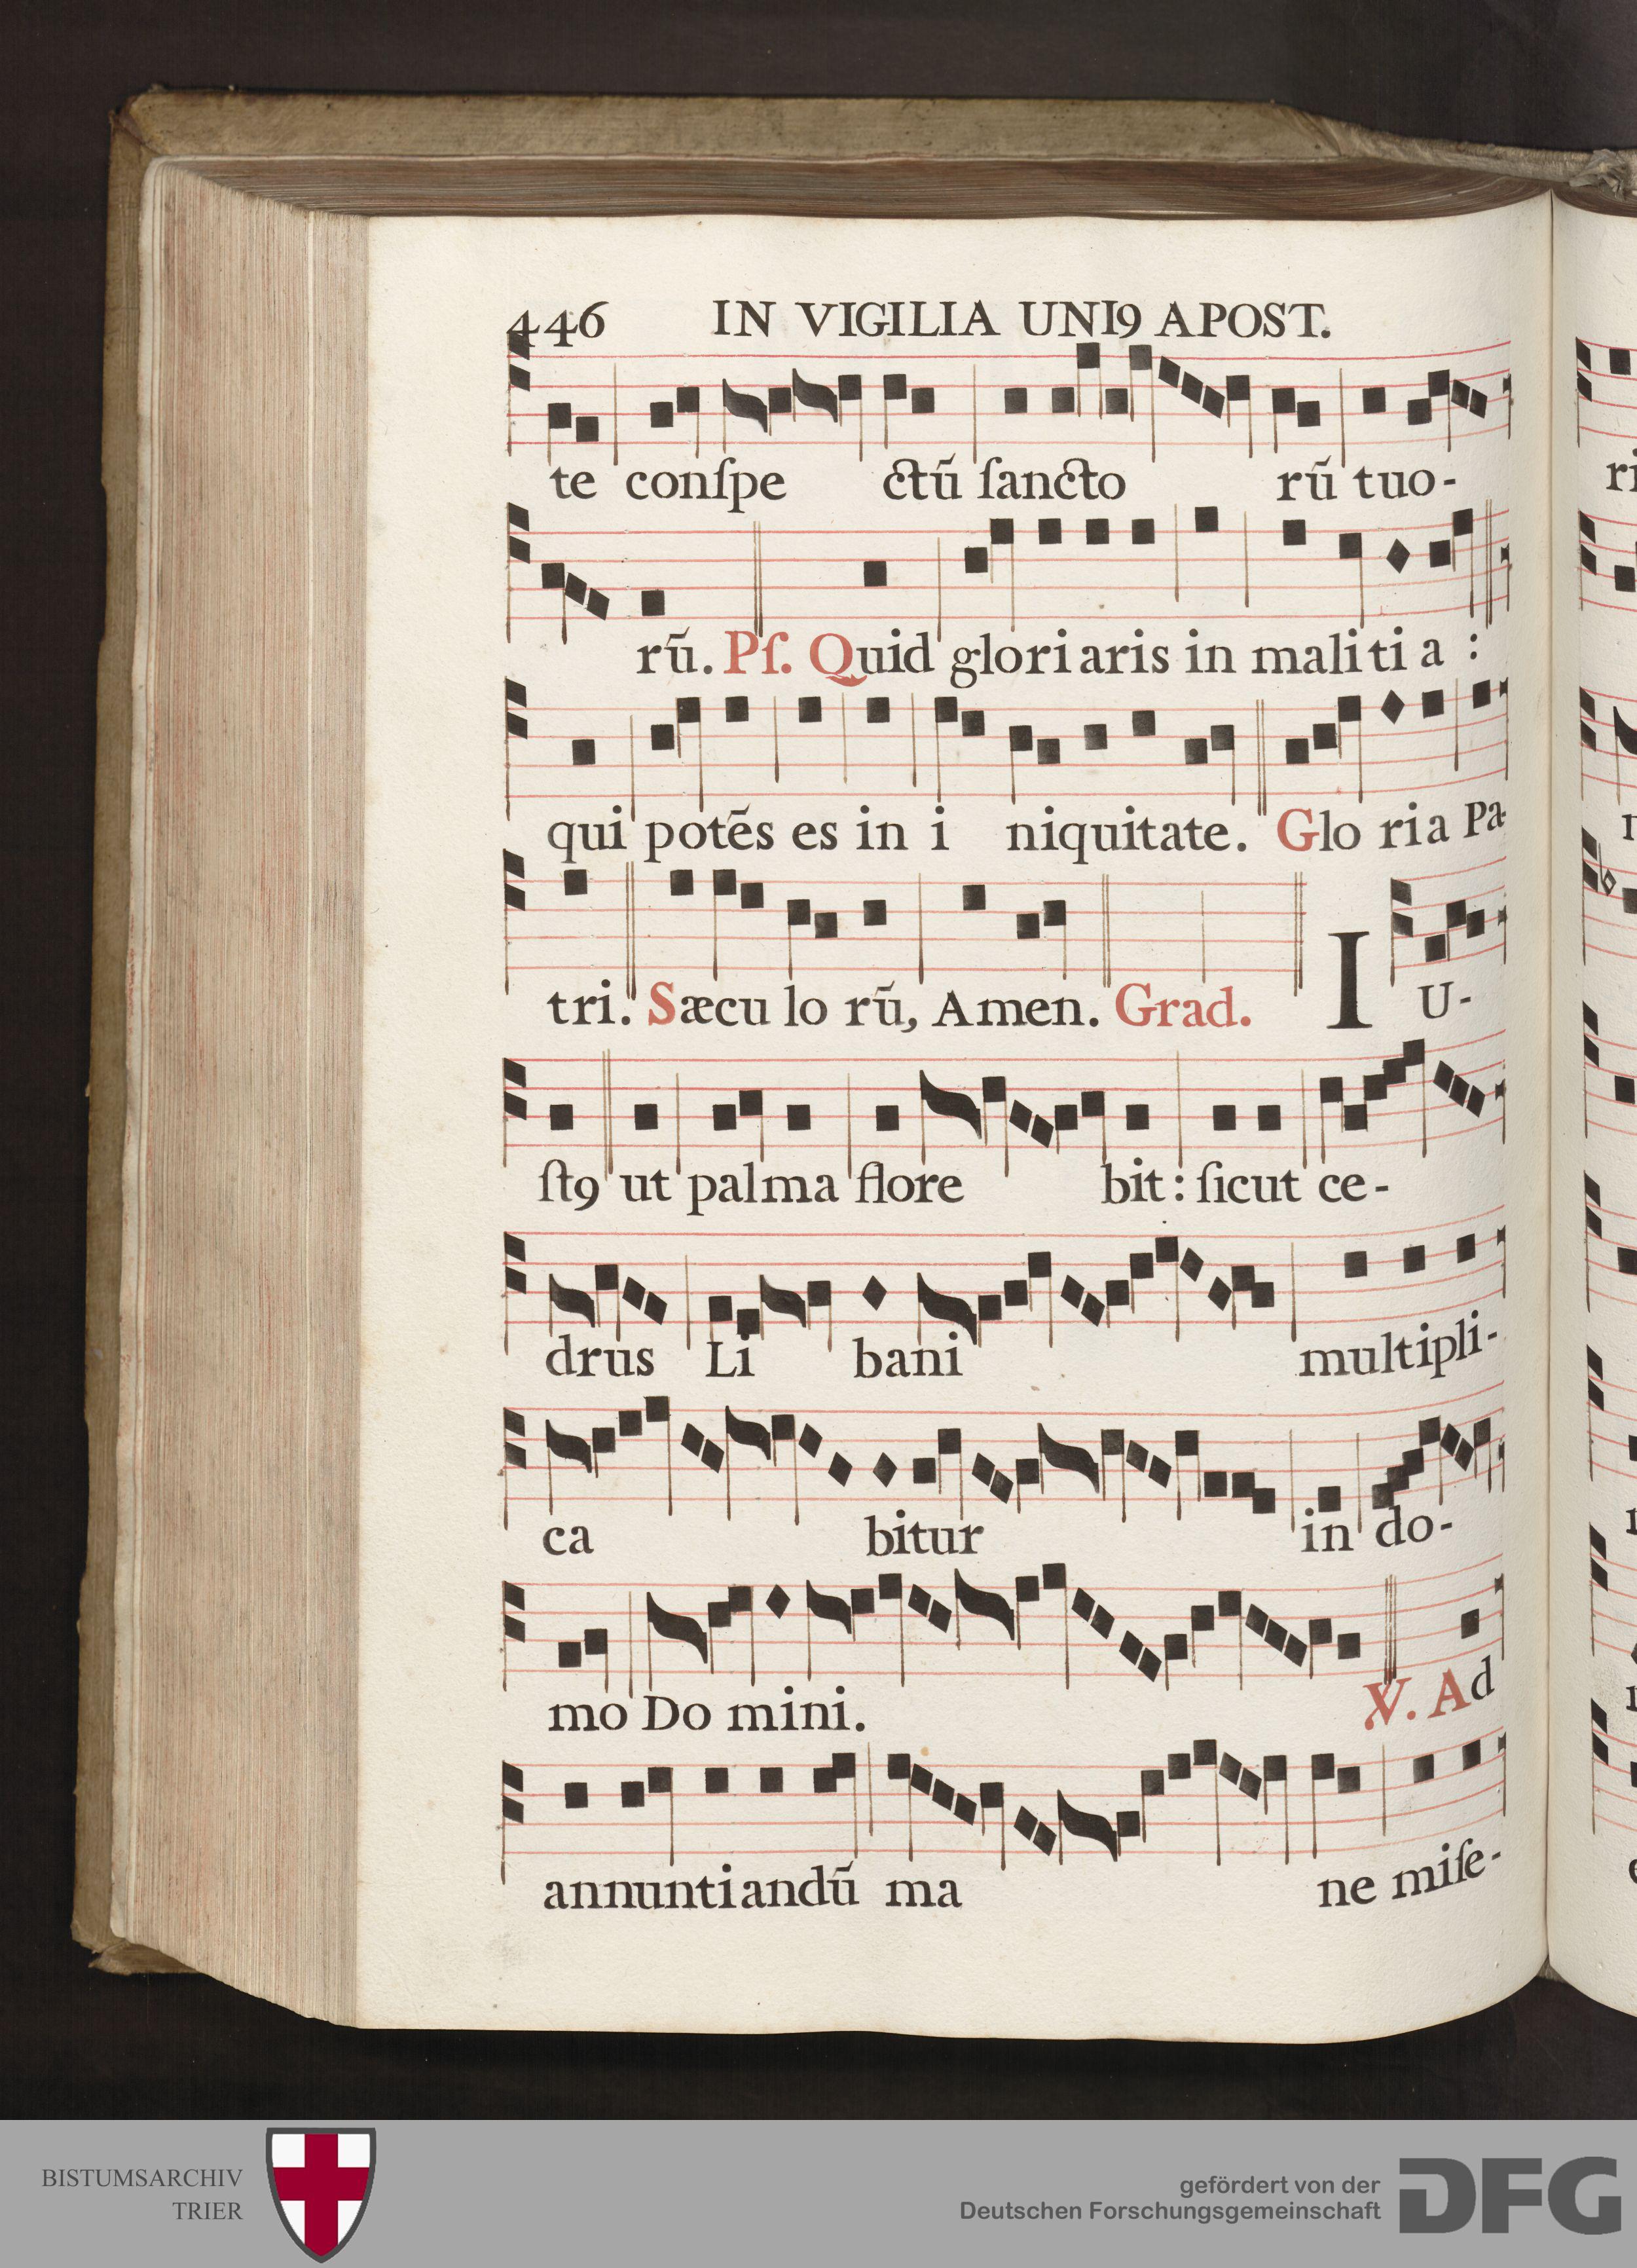 446 IN VIGILIA UNI9 APOST.
te conſpe ctũ ſancto rũ tuo-
rũ. Pſ. Quid gloriaris in malitia :
qui potẽs es in i niquitate. Glo ria Pa-
tri. Sæcu lo rũ, Amen. Grad. I U-
ſt9 ut palma flore bit : ſicut ce-
drus Li bani multipli-
ca bitur in do-
mo Do mini. ℣. Ad
annuntiandũ ma ne miſe-
BISTUMSARCHIV
TRIER
gefördert von der
Deutschen Forschungsgemeinschaft
DFG